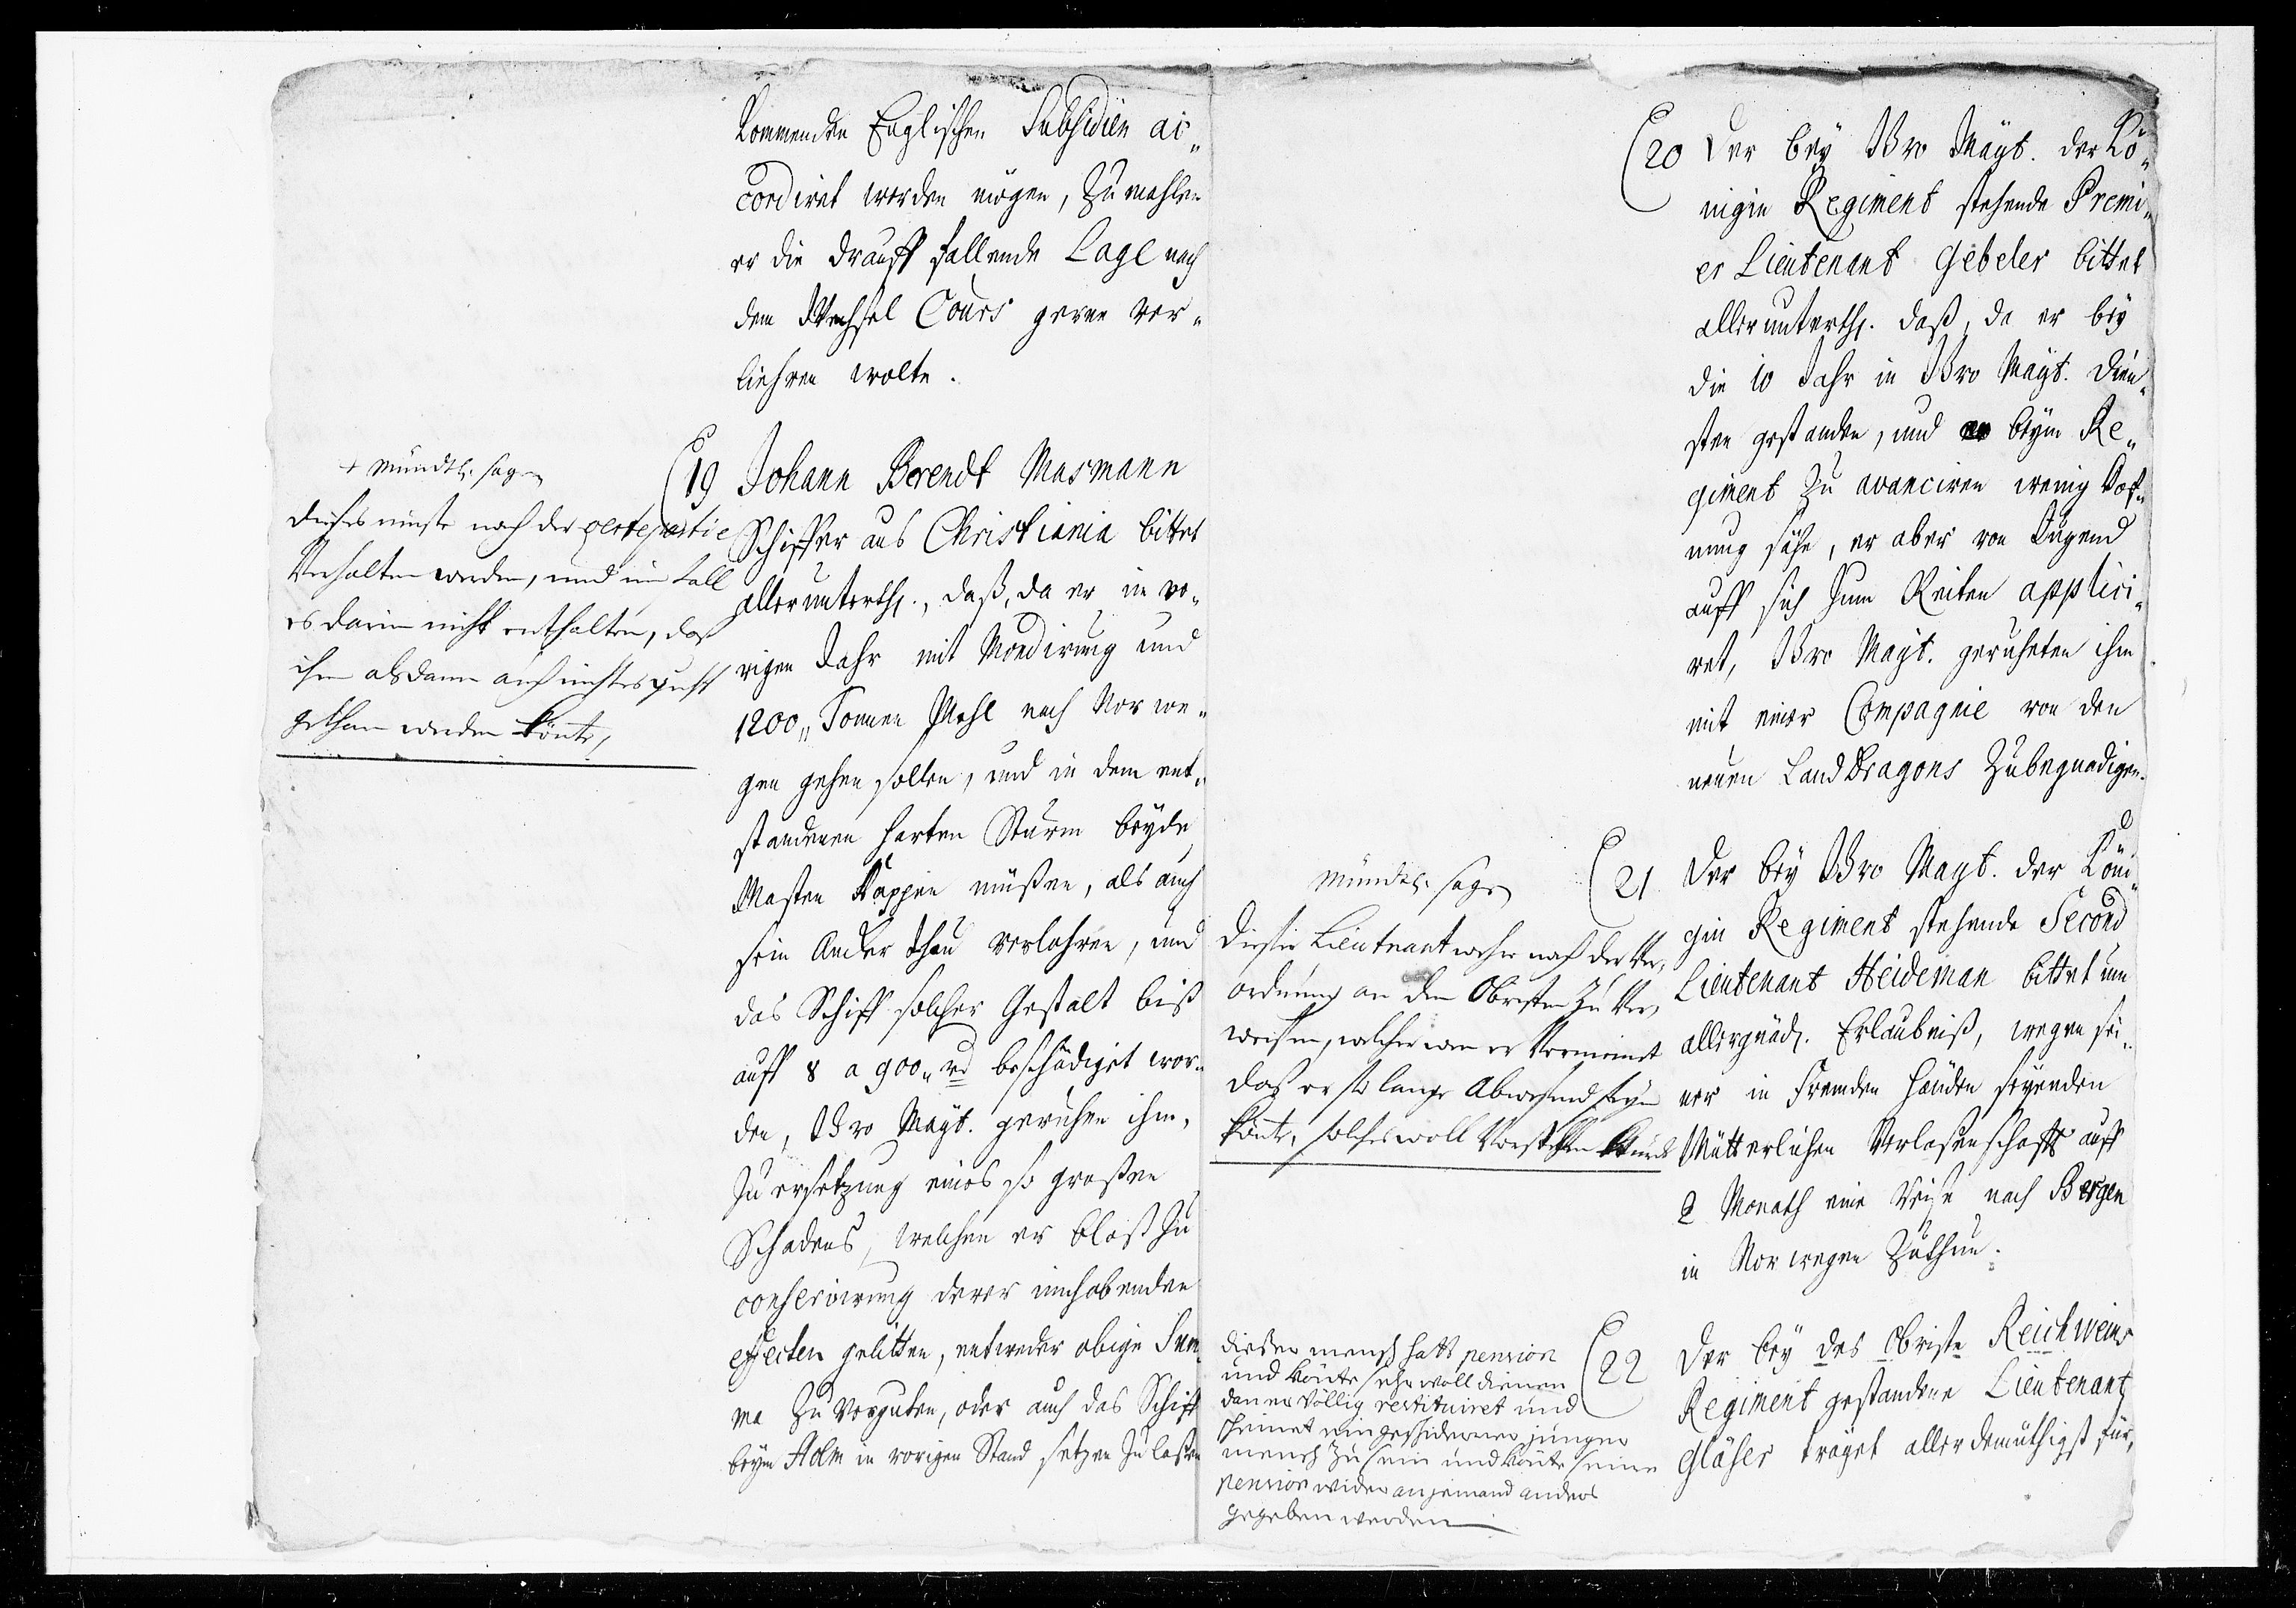 kommenden Englischen Subsidien ac„
cordiret werden mögen, zumahlen
er die drauff fallende Lage nach
dem Wechsel Cours gerne ver„
liehren wolte.
+ mündtl. sagen
dieses müste nach der certepartie
Verhalten werden, und im fall
es darin nicht enthalten, daß
ihm alsdann auch nichtes gutt
gethan werden könte,
19 Johann Berendt Masmann
Schiffer aus Christiania bittet
allerunterth., daß, da er in vo„
rigen Jahr mit Mondirung und
1200„ Tonnen Mehl nach Norwe„
gen gehen sollen, und in dem ent„
standenen harten Sturm beyde
Masten kappen müßen, als auch
sein Ancker thau verlohren, und
das Schiff solcher Gestalt biß
auff 8 a 900„ rd beschädiget wor„
den, Ew. Mayt. geruhen ihm,
zu ersetzung eines so großen
Schadens, welchen er bloß zu
conservirung derer innhabenden
effecten gelitten, entweder obige Sum„
ma zu verguten, oder auch das Schiff
beym Holm in vorigen Stand setzen zu laßen
20 Der bey Ihro Mayt. der Kö„
nigin Regiment stehende Premi„
er Lieutenant Gebeler bittet
allerunterth. daß, da er bey
die 10 Jahr in Ihro Mayt. Dien„
sten gestanden, und beym Re„
giment zu avanciren wenig Hof„
nung sähe, er aber von Jugend
auff sich zum Reiten applici„
ret, Ihro Mayt. geruheten ihm
mit einer Compagnie von den
neuen Land Dragons zubegnadigen.
mündtl. sagen
Diesser Lieutnant wehre nach der Ver„
ordnung an den Obristen zu Ver„
weisen, welcher wen er Vermeinet
daß er so lange Abwesend seyn
könte, solches woll Vorstellen würde
21 Der bey Ihro Mayt. der Köni„
gin Regiment stehende Second
Lieutenant Heideman bittet um
allergnäd. Erlaubniß, wegen sei„
ner in fremden Händen seyenden
Mütterlichen Verlaßenschafft auff
2 Monath eine Reise nach Bergen
in Norwegen zuthun.
dießer mensch hatt pension
und könte sehr woll dienen
dan er völlig restituiret und
scheinet ein geschickter junger
mensch zu sein und könte seine
pension wider an jemand anders
gegeben werden
22 Der bey des Obriste Reichweins
Regiment gestandene Lieutenant
Gläser träget allerdemüthigst für,